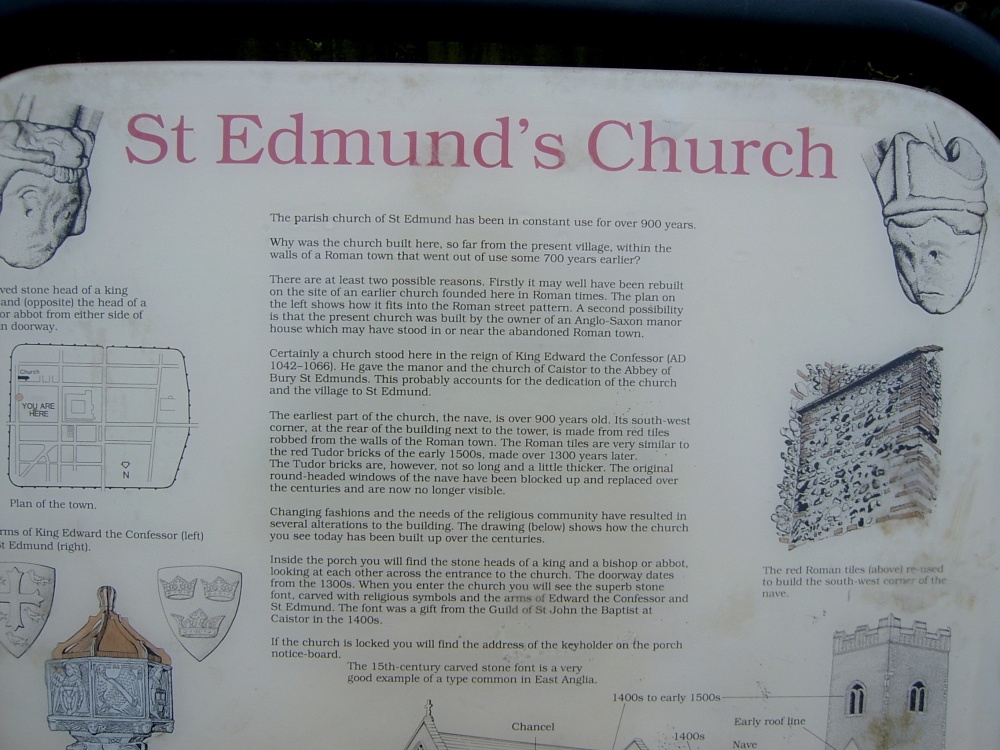 St Edmund's Church
The parish church of St Edmund has been in constant use for over 900 years.
Why was the church built here, so far from the present village, within the
walls of a Roman town that went out of use some 700 years earlier?
There are at least two possible reasons. Firstly it may well have been rebuilt
on the site of an earlier church founded here in Roman times. The plan on
the left shows how it fits into the Roman street pattern. A second possibility
is that the present church was built by the owner of an Anglo-Saxon manor
house which may have stood in or near the abandoned Roman town.
Certainly a church stood here in the reign of King Edward the Confessor (AD
1042–1066). He gave the manor and the church of Caistor to the Abbey of
Bury St Edmunds. This probably accounts for the dedication of the church
and the village to St Edmund.
The earliest part of the church, the nave, is over 900 years old. Its south-west
corner, at the rear of the building next to the tower, is made from red tiles
robbed from the walls of the Roman town. The Roman tiles are very similar to
the red Tudor bricks of the early 1500s, made over 1300 years later.
The Tudor bricks are, however, not so long and a little thicker. The original
round-headed windows of the nave have been blocked up and replaced over
the centuries and are now no longer visible.
Changing fashions and the needs of the religious community have resulted in
several alterations to the building. The drawing (below) shows how the church
you see today has been built up over the centuries.
Inside the porch you will find the stone heads of a king and a bishop or abbot,
looking at each other across the entrance to the church. The doorway dates
from the 1300s. When you enter the church you will see the superb stone
font, carved with religious symbols and the arms of Edward the Confessor and
St Edmund. The font was a gift from the Guild of St John the Baptist at
Caistor in the 1400s.
If the church is locked you will find the address of the keyholder on the porch
notice-board.
The 15th-century carved stone font is a very
good example of a type common in East Anglia.
ved stone head of a king
and (opposite) the head of a
or abbot from either side of
n doorway.
Church
YOU ARE
HERE
N
Plan of the town.
rms of King Edward the Confessor (left)
st Edmund (right).
The red Roman tiles (above) re-used
to build the south-west corner of the
nave.
1400s to early 1500s
Chancel
Early roof line
1400s
Nave